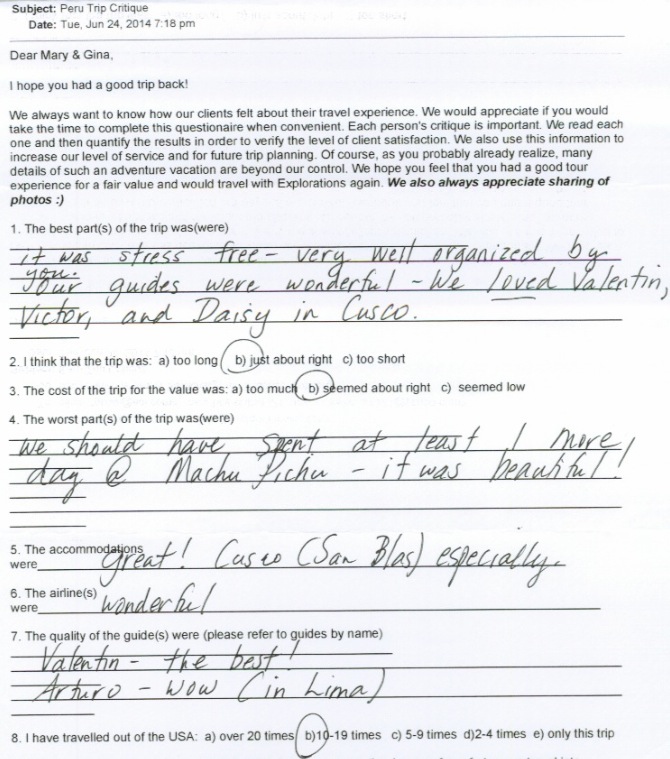 Subject: Peru Trip Critique
Date: Tue, Jun 24, 2014 7:18 pm
Dear Mary & Gina,
I hope you had a good trip back!
We always want to know how our clients felt about their travel experience. We would appreciate if you would
take the time to complete this questionaire when convenient. Each person's critique is important. We read each
one and then quantify the results in order to verify the level of client satisfaction. We also use this information to
increase our level of service and for future trip planning. Of course, as you probably already realize, many
details of such an adventure vacation are beyond our control. We hope you feel that you had a good tour
experience for a fair value and would travel with Explorations again. We also always appreciate sharing of
photos :)
1. The best part(s) of the trip was(were)
it was stress free - very well organized by
you.
Our guides were wonderful - We loved Valentin,
Victor, and Daisy in Cusco.
2. I think that the trip was: a) too long b) just about right c) too short
3. The cost of the trip for the value was: a) too much b) seemed about right c) seemed low
4. The worst part(s) of the trip was(were)
We should have spent at least 1 more
day @ Machu Pichu - it was beautiful!
5. The accommodations
were Great! Cusco (San Blas) especially.
6. The airline(s)
were wonderful
7. The quality of the guide(s) were (please refer to guides by name)
Valentin - the best!
Arturo - Wow (in Lima)
8. I have travelled out of the USA: a) over 20 times b)10-19 times c) 5-9 times d)2-4 times e) only this trip